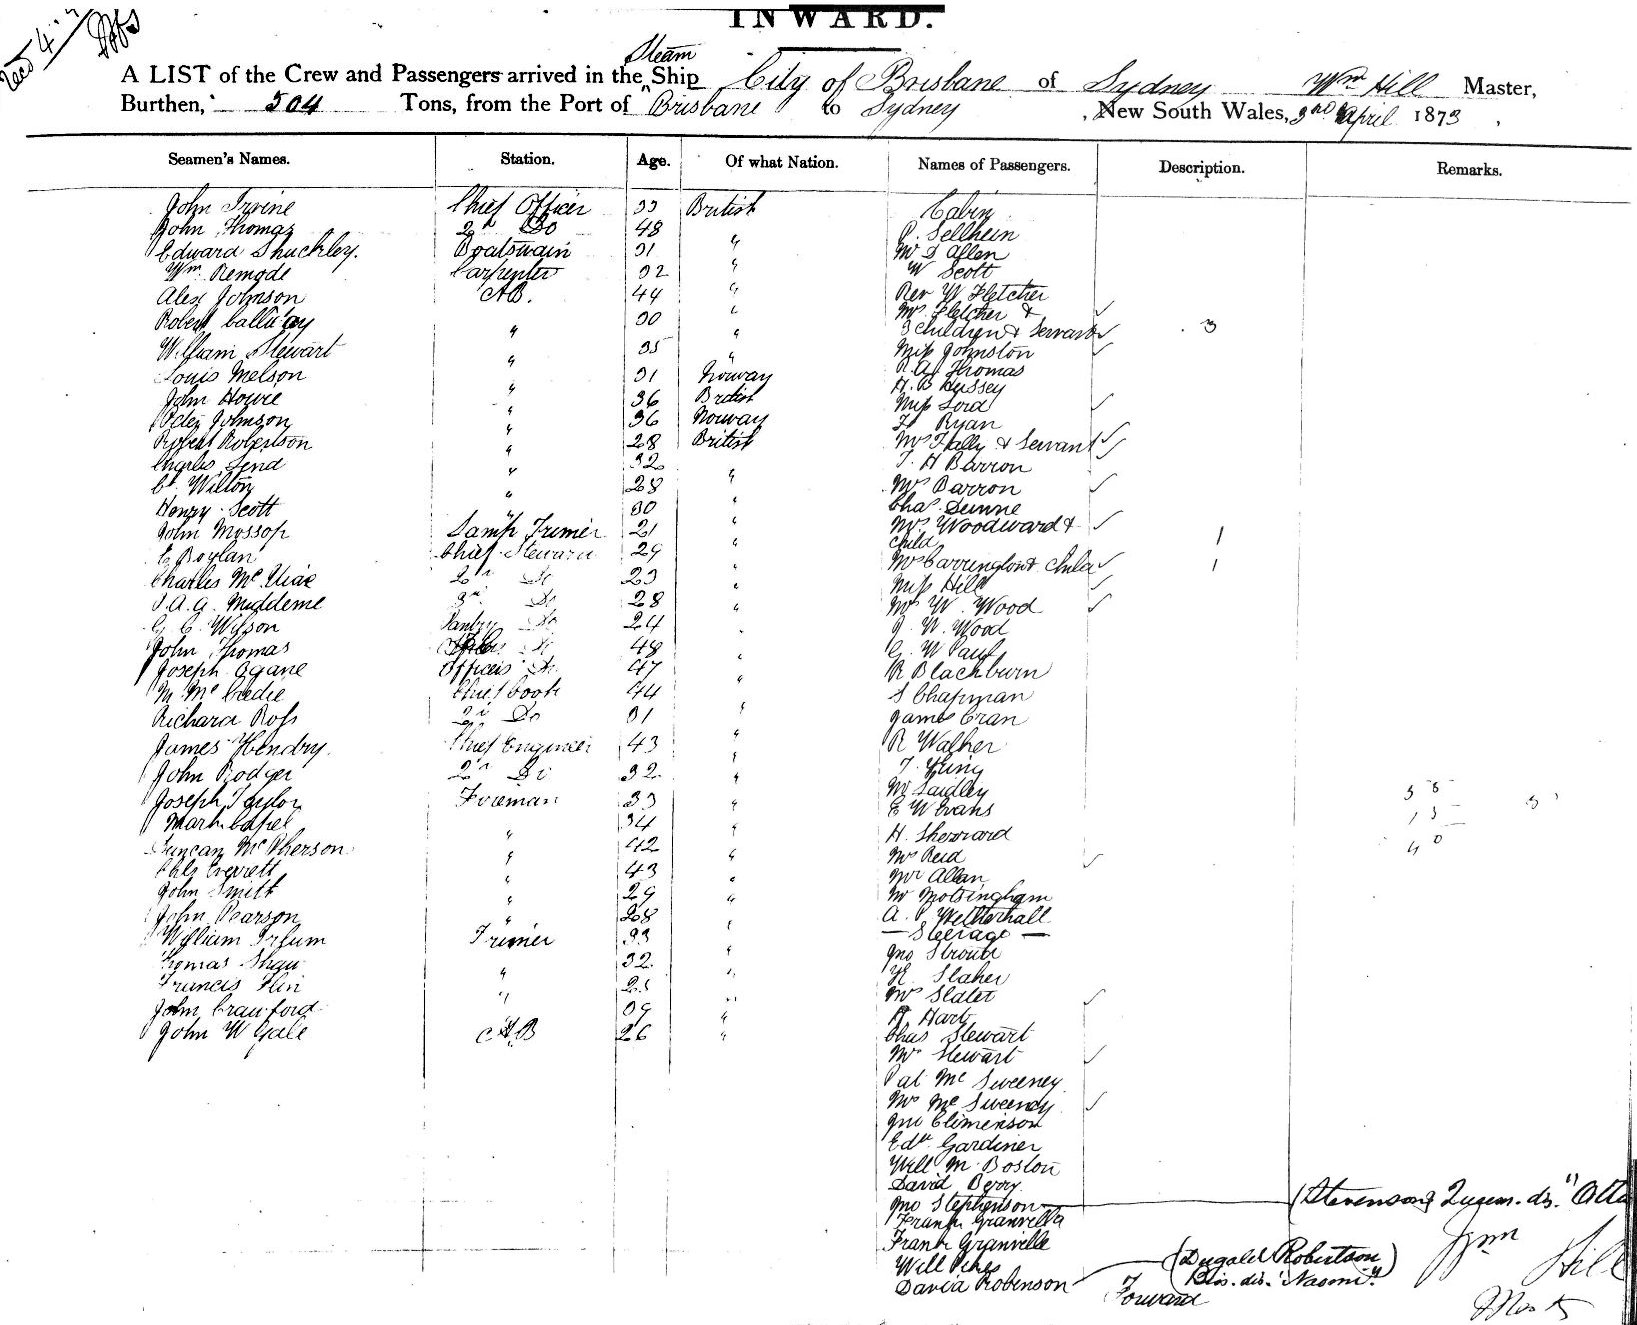 INWARD.
Steam
A LIST of the Crew and Passengers arrived in the Ship City of Brisbane of Sydney Wm Hill Master,
Burthen, 504 Tons, from the Port of Brisbane to Sydney, New South Wales, 3rd April 1873,
Seamen's Names. Station. Age. Of what Nation. Names of Passengers. Description. Remarks.
John Irvine Chief Officer 33 British Cabin
John Thomas 2nd Do 48 " P. Sellhein
Edward Shuckley. Boatswain 31 " Mr D Allen
Wm Remode Carpenter 32 " W Scott
Alex Johnson AB. 44 " Rev W Fletcher
Robert " 30 " Mrs Fletcher &
3 children & Servant 3
William Stewart " 35 " Miss Johnston
Louis Melson " 31 Norway R A Thomas
H. B Hussey
John Howie " 36 British Miss Lord
Peter Johnson " 36 Norway Ryan
Robert Robertson " 28 British Mrs Fally & Servant
Charles Lend " 32 " T. H Barron
Wilton " 28 " Mrs Barron
Henry Scott " 30 " Chas Dunne
John Mossop Lamp Trimer 21 " Mrs Woodward &
child 1
E Boylan Chief Steward 29 " Mrs Carrington & Child 1
Charles Mc 2nd Do 23 " Miss Hill
Middleme 3rd Do 28 " Mrs W. Wood
G. C. Wilson Pantry Do 24 " J. W. Wood
John Thomas 48 " G W Paul
Joseph Ogane Officers Do 47 " R Blackburn
M Mc Credie Chief Cook 44 S Chapman
Richard Ross 2nd Do 31 " James Cran
James Hendry. Chief Engineer 43 " R Walker
John Rodger 2nd Do 32 " T.
Joseph Taylor Foreman 33 " Mr Saidley
E W Evans
Mark Capel " 34 " H. Sherrard
Duncan McPherson " 42 " Mrs Reid
Chls Everett " 43 " Mr Allan
John Smith " 29 " Mr Motsingham
John Pearson " 28 A. P Wetherhall
William Trimer 33 " — Steerage —
Thomas Shaw " 32 " Jno Strouts
Francis Flin " "
Mrs Slater
John Crawford 39 " Hart
John W Gale AB 26 " Chas Stewart
Mrs Stewart
Pat Mc Sweeney
Mrs Mc Sweeney
Jno Climenson
Edw Gardiner
Will M Boston
David Berry
Jno Stephenson (Stevenson
Frank Granvilla
Frank Granville
Will
David Robinson (Dugald Robertson)
Dis. dis. "Naomi"
Forward
Wm Hill